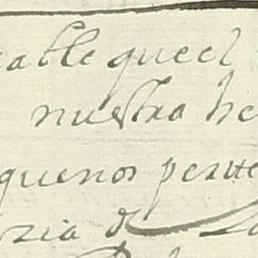 alle que el
nuestra he
quenos perte
zia de